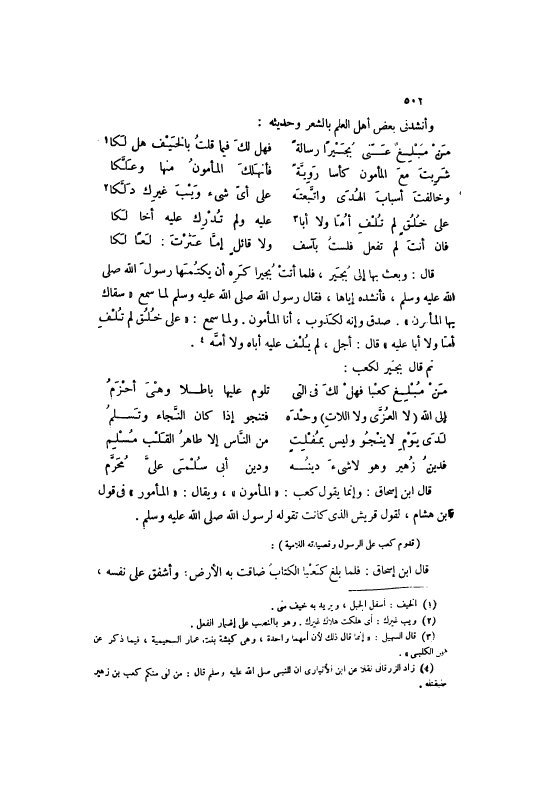 ٥٠٢
وأنشدنى بعض أهل العلم بالشعر وحديثه :
مَنْ مُبْلِغٌ عَنّى بُجَيْرًا رسالةً فهل لكَ فيما قلتُ بالخَيْفِ هل لَكا١
شَرِبتَ معَ المأمون كأسا رَوِيَّةً فأنْهلكَ المأمونُ منها وعَلَّكا
وخالفتَ أسبابَ الهُدَى واتَّبعتَه على أىّ شىء وَيْبَ غيرِك دَلَّكا٢
على خُلُقٍ لم تُلْفِ أُمًّا ولا أبا٣ عليه ولم تُدْرِك عليه أخا لَكا
فان أنتَ لم تفعل فلستُ بآسف ولا قائلٍ إمَّا عَثَرْتَ : لَعًا لَكا
قال : وبعث بها إلى بُجَير ، فلما أتتْ بُجيرا كَرِه أن يكتُمَها رسولَ الله صلى
الله عليه وسلم ، فأنشده إياها ، فقال رسول الله صلى الله عليه وسلم لما سمع « سقاك
بها المأمون » . صدق وإنه لكذوب ، أنا المأمون . ولما سمع : « على خُلُق لم تُلْفِ
أمًّا ولا أبا عليه » قال : أجل ، لم يُلْف عليه أباه ولا أمَّه ٤ .
ثم قال بجَير لكعب :
مَنْ مُبْلِغ كعْبا فهلْ لك فى التى تلوم عليها باطلا وهْىَ أحْزَمُ
إلى الله (لا العُزَّى ولا اللاتِ) وحْدَه فتنجو إذا كان النَّجاء وتَسْلمُ
لدَى يَوْمِ لاينْجُو وليس بمُفْلِتٍ من النَّاس إلا طاهرُ القلْبِ مُسْلِم
فدينُ زُهير وهو لاشىءَ دينُه ودين أبى سُلْمَى علىَّ مُحَرَّم
قال ابن إسحاق : وإنما يقول كعب : « المأمون » ، ويقال : « المأمور » فى قول
ابن هشام ، لقول قريش الذى كانت تقوله لرسول الله صلى الله عليه وسلم .
( قدوم كعب على الرسول وقصيدته اللامية ) :
قال ابن إسحاق : فلما بلغ كَعْبا الكتابُ ضاقت به الأرض : وأشفق على نفسه ،
(١) الخيف : أسفل الجبل ، ويريد به خيف منى .
(٢) ويب غيرك : أى هلكت هلاك غيرك . وهو بالنصب على إضمار الفعل .
(٣) قال السهيلى : « إنما قال ذلك لأن أمهما واحدة ، وهى كبشة بنت عمار السحيمية ، فيما ذكر عن
ابن الكلبى » .
(٤) زاد الزرقانى نقلا عن ابن الأنبارى ان النبى صلى الله عليه وسلم قال : من لقى منكم كعب بن زهير
فليقتله .